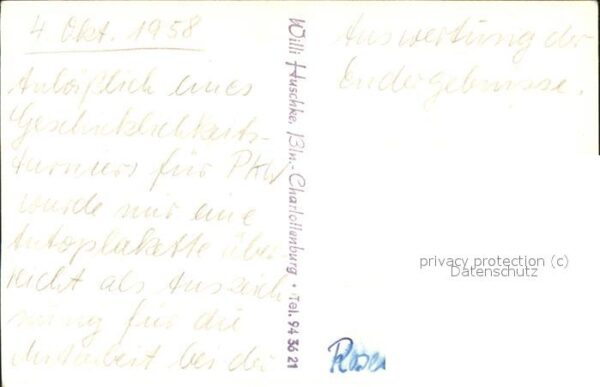 4 Okt. 1958
Anläßlich eines
Geschicklichkeits-
turniers für PKW
wurde mir eine
Autoplakette über-
reicht als Auszeich
nung für die
Mitarbeit bei der
Willi Huschke, Bln.-Charlottenburg • Tel. 94 36 21
Auswertung der
Endergebnisse.
privacy protection (c)
Datenschutz